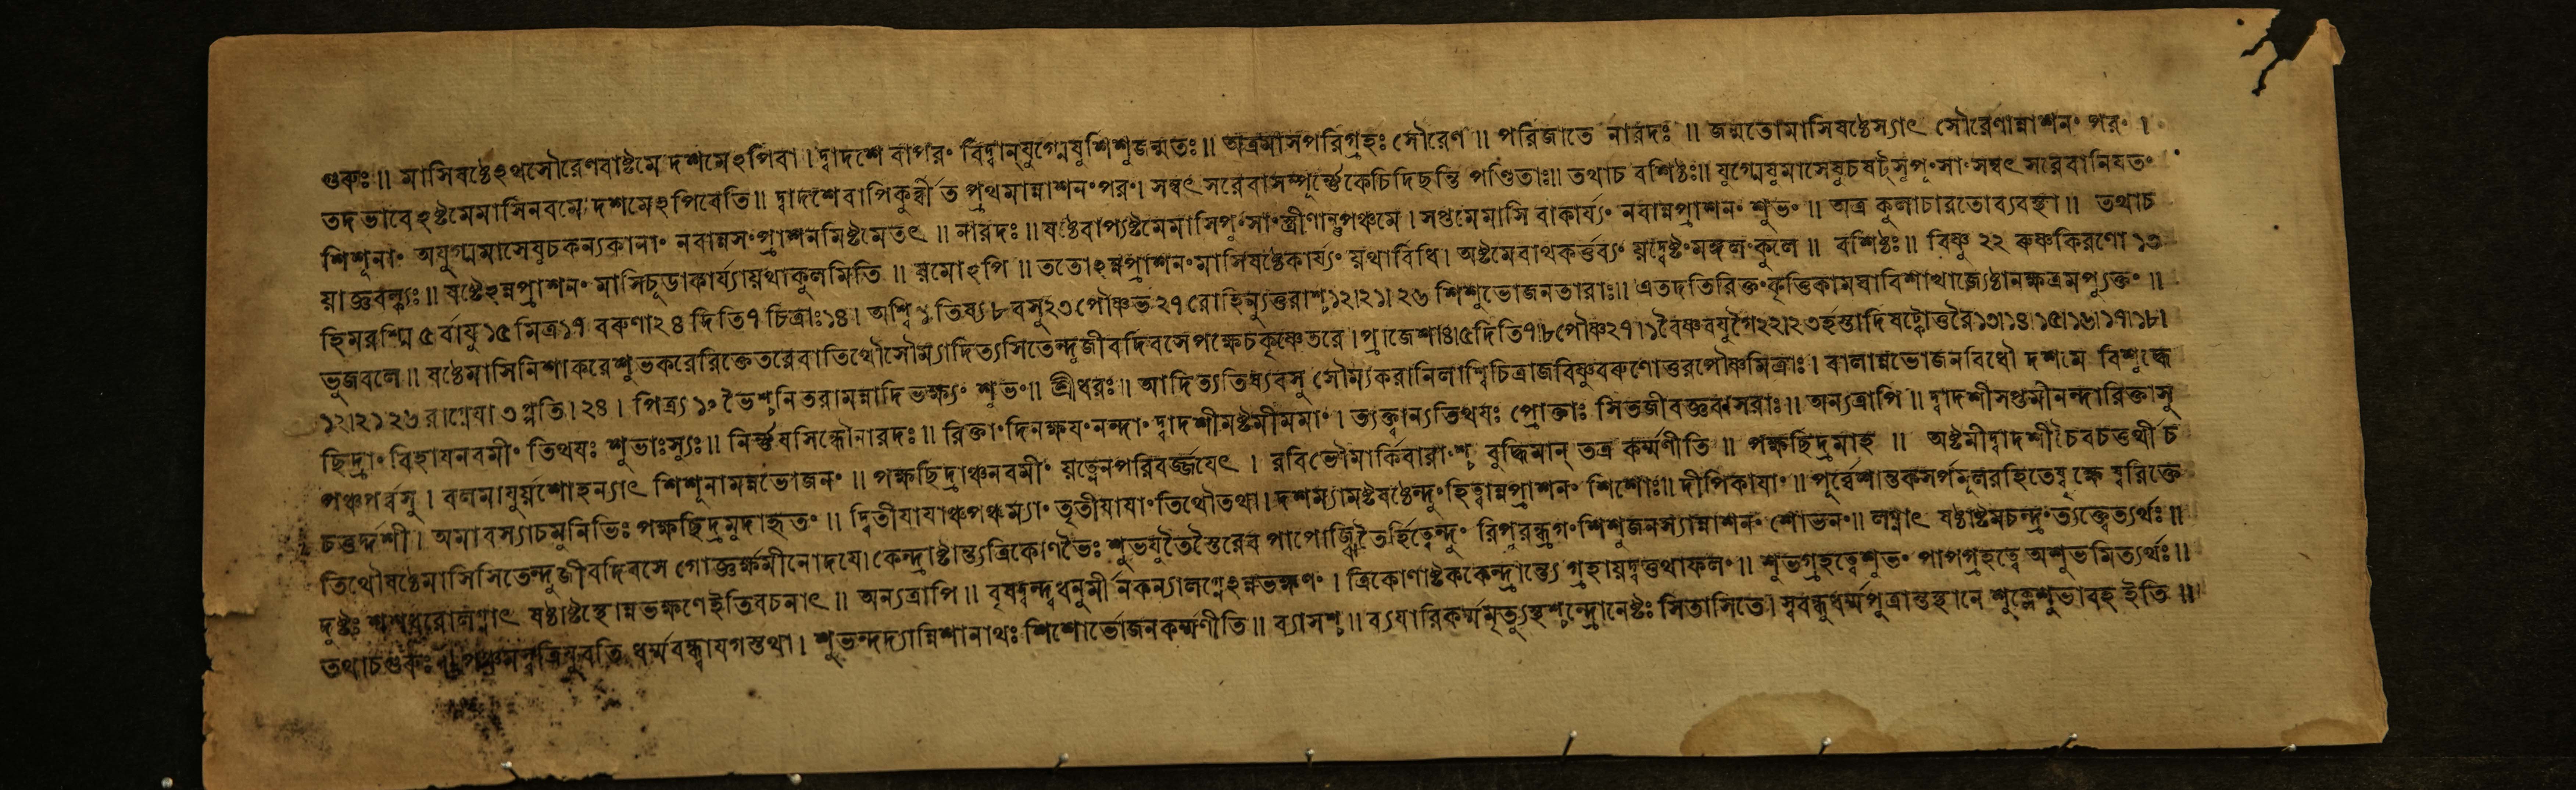 গুৰুঃ ॥ মাসিষষ্ঠেঽথসৌরেণবাষ্টমে দশমেঽপিবা । দ্বাদশে বাপরং বিদ্বান্যুগ্মেষুশিশুজন্মতঃ ॥ অত্রমাসপরিগ্রহঃ সৌরেণ ॥ পরিজাতে নারদঃ ॥ জন্মতোমাসিষষ্ঠেস্যাৎ সৌরেণান্নাশনং পরং ।
তদভাবেঽষ্টমেমাসিনবমে দশমেঽপিবেতি ॥ দ্বাদশেবাপিকুর্ব্বীত প্রথমান্নাশনংপরং। সম্বৎসরেবাসম্পূর্ণেকেচিদিছন্তি পণ্ডিতাঃ॥ তথাচ বশিষ্ঠঃ॥ যুগ্মেষুমাসেষুচষট্সুপুংসাংসম্বৎসরেবানিযতং
শিশূনাং অযুগ্মমাসেষুচকন্যকানাং নবান্নসংপ্রাশনমিষ্টমেতৎ ॥ নারদঃ ॥ ষষ্ঠেবাপ্যষ্টমেমাসিপুংসাংস্ত্রীণান্তুপঞ্চমে । সপ্তমেমাসি বাকার্য্যং নবান্নপ্রাশনং শুভং ॥ অত্র কুলাচারতোব্যবস্থা ॥ তথাচ
য়াজ্ঞবল্ক্যঃ ॥ ষষ্ঠেঽন্নপ্রাশনং মাসিচূডাকার্য্যায়থাকুলমিতি ॥ য়মোঽপি ॥ ততোঽন্নপ্রাশনংমাসিষষ্ঠেকার্য্যং য়থাবিধি। অষ্টমেবাথকর্ত্তব্যং য়দ্বেষ্টংমঙ্গলংকুলে ॥ বশিষ্ঠঃ॥ বিষ্ণু ২২ ৰুষ্ণকিরণো ১৩
হিমরশ্মি ৫ র্বাযু ১৫ মিত্র১৭ বৰুণা২৪ দিতি৭ চিত্রাঃ১৪। অশ্বি ১ তিষ্য ৮ বসু২৩ পৌষ্ণভ ২৭ রোহিন্যুত্তরাশ্চ১২।২১।২৬ শিশুভোজনতারাঃ॥ এতদতিরিক্তংকৃত্তিকামঘাবিশাখাজ্যেষ্ঠানক্ষত্রমপ্যুক্তং ॥
ভুজবলে ॥ ষষ্ঠেমাসিনিশাকরেশুভকরেরিক্তেতরেবাতিথৌসৌম্যাদিত্যসিতেন্দুজীবদিবসেপক্ষেচকৃষ্ণেতরে । প্রাজেশা৪।৫দিতি৭।৮পৌষ্ণ২৭।১বৈষ্ণবযুগৈ২২।২৩র্হস্তাদিষট্কোত্তরৈ১৩।১৪।১৫।১৬।১৭।১৮।
১২।২১ ২৬ রাগ্নেযা ৩ প্পতি।২৪। পিত্র্য ১০ ভৈশ্চনিতরামন্নাদি ভক্ষ্যং শুভং॥ শ্রীধরঃ॥ আদিত্যতিষ্যবসু সৌম্যকরানিলাশ্বিচিত্রাজবিষ্ণুবৰুণোত্তরপৌষ্ণমিত্রাঃ। বালান্নভোজনবিধৌ দশমে বিশুদ্ধে
ছিদ্রাং বিহাযনবমীং তিথযঃ শুভাঃস্যুঃ॥ নির্ণযসিন্ধৌনারদঃ॥ রিক্তাংদিনক্ষযংনন্দাং দ্বাদশীমষ্টমীমমাং। ত্যক্ত্বান্যতিথযঃ প্রোক্তাঃ সিতজীবজ্ঞবাসরাঃ॥ অন্যত্রাপি ॥ দ্বাদশীসপ্তমীনন্দারিক্তাসু
পঞ্চপর্ব্বসু । বলমাযুর্য়শোহন্যাৎ শিশূনামন্নভোজনং ॥ পক্ষছিদ্রাঞ্চনবমীং য়ত্নেনপরিবর্জ্জযেৎ । রবিভৌমার্কিবারাংশ্চ বুদ্ধিমান্ তত্র কর্ম্মণীতি ॥ পক্ষছিদ্রমাহ ॥ অষ্টমীদ্বাদশীচৈবচতুর্থীচ
চতুর্দ্দশী। অমাবস্যাচমুনিভিঃ পক্ষছিদ্রমুদাহৃতং ॥ দ্বিতীযাযাঞ্চপঞ্চম্যাং তৃতীযাযাংতিথৌতথা। দশম্যামষ্টষষ্ঠেন্দুংহিত্বান্নপ্রাশনং শিশোঃ॥ দীপিকাযাং ॥ পূর্ব্বেশান্তকসর্পমূলরহিতেষ্বৃক্ষে ষ্বরিক্তে
তিথৌষষ্ঠেমাসিসিতেন্দুজীবদিবসে গোজ্ঞর্ক্ষমীনোদযে। কেন্দ্রাষ্টান্ত্যত্রিকোণভৈঃ শুভযুতৈস্তৈরেব পাপোজ্ঝিতৈর্হিত্বেন্দুং রিপুরন্ধ্রগংশিশুজনস্যান্নাশনং শোভনং॥ লগ্নাৎ ষষ্ঠাষ্টমচন্দ্রংত্যক্ত্বেত্যর্থঃ ॥
দুষ্টঃ শশধরোলগ্নাৎ ষষ্ঠাষ্টস্থোন্নভক্ষণেইতিবচনাৎ ॥ অন্যত্রাপি ॥ বৃষদ্বন্দ্বধনুর্মীনকন্যালগ্নেঽন্নভক্ষণং । ত্রিকোণাষ্টককেন্দ্রান্ত্যে গ্রহায়দ্বত্তথাফলং ॥ শুভগ্রহত্বেশুভং পাপগ্রহত্বে অশুভমিত্যর্থঃ ॥
তথাচগুৰুঃ ॥ ধর্ম্মবন্ধ্বাযগস্তথা। শুভন্দদ্যান্নিশানাথঃ শিশোর্ভোজনকর্ম্মণীতি ॥ ব্যাসশ্চ ॥ ব্যযারিকর্ম্মমৃত্যুস্থশ্চন্দ্রোনেষ্টঃ সিতাসিতে। স্ববন্ধুধর্ম্মপুত্রান্তস্থানে শুক্লেশুভাবহ ইতি ॥